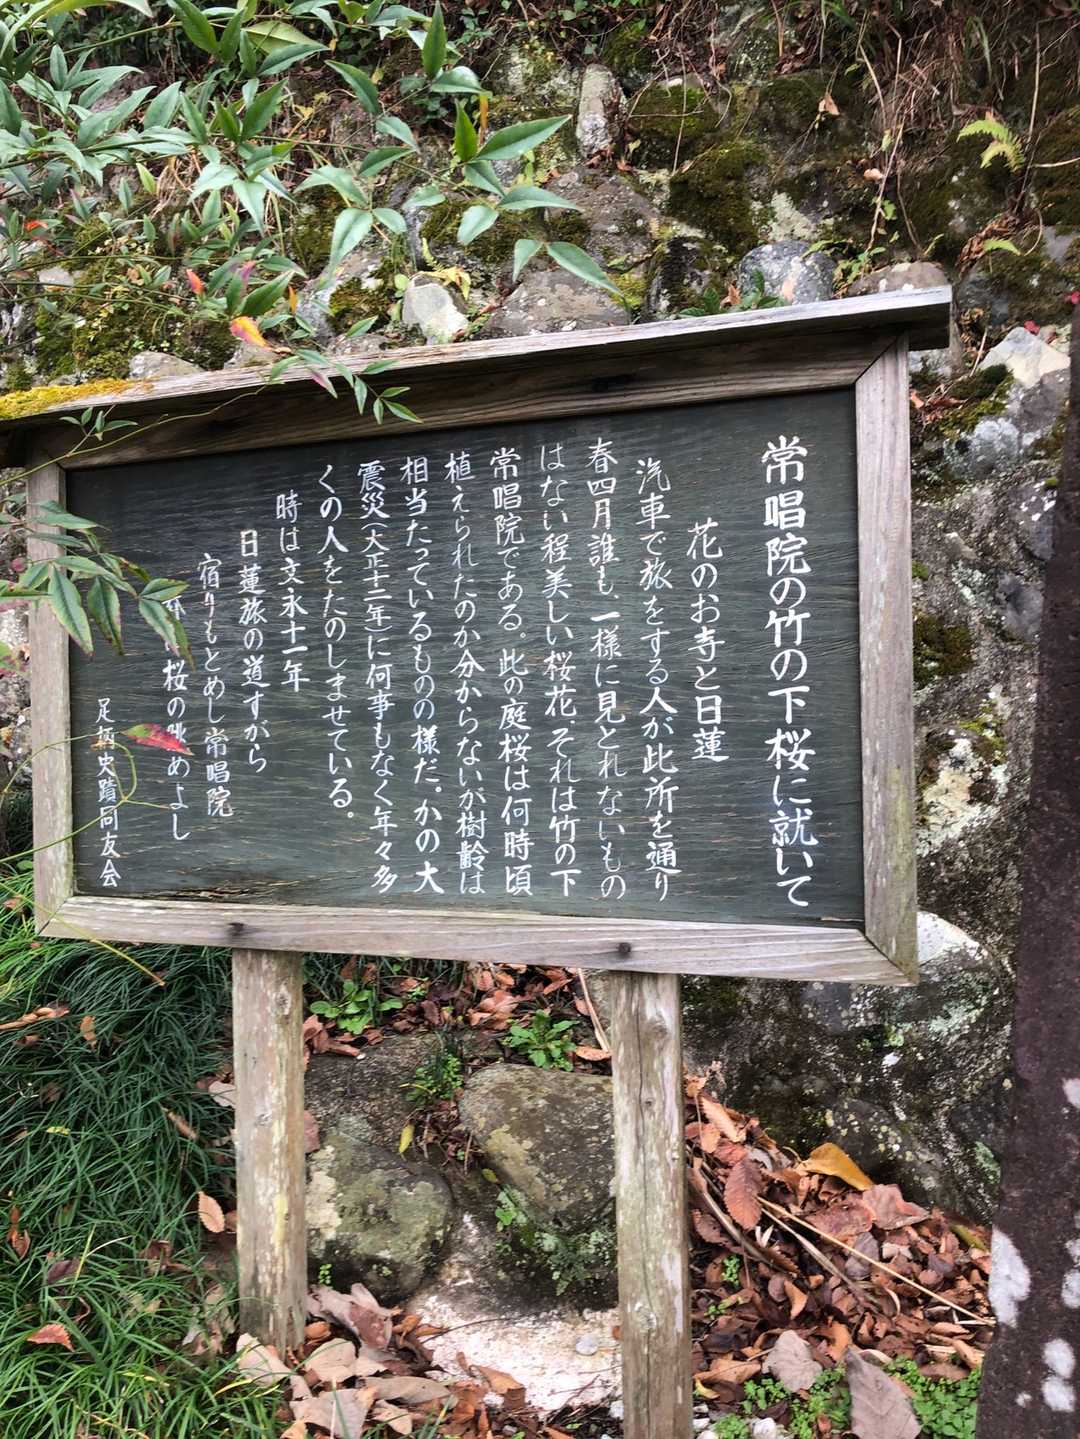 常唱院の竹の下桜に就いて
花のお寺と日蓮
汽車で旅をする人が此所を通り
春四月誰も、一様に見とれないもの
はない程美しい桜花、それは竹の下
常唱院である。此の庭桜は何時頃
植えられたのか分からないが樹齢は
相当たっているものの様だ。かの大
震災(大正十二年)に何事もなく年々多
くの人をたのしませている。
時は文永十一年
日蓮旅の道すがら
宿りもとめし常唱院
桜の眺めよし
足柄史蹟同友会